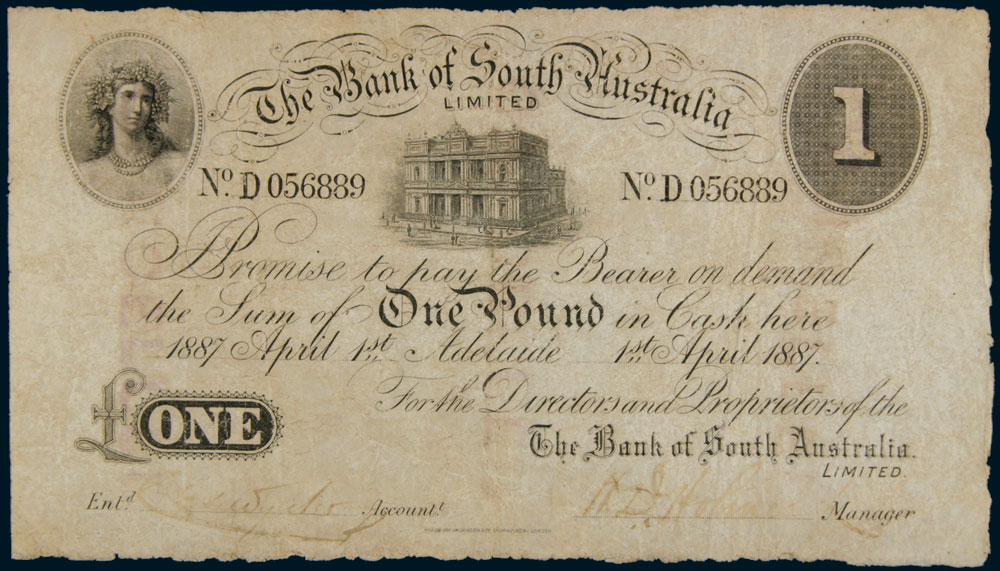 The Bank of South Australia
LIMITED
1
No. D 056889 No. D 056889
I Promise to pay the Bearer on demand
the Sum of One Pound in Cash here
1887 April 1st. Adelaide 1st. April 1887.
£ ONE
For the Directors and Proprietors of the
The Bank of South Australia.
LIMITED.
Entd Accountt Manager